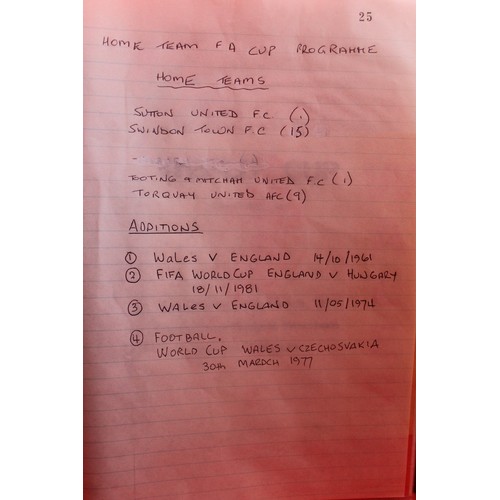 25
HOME TEAM F A CUP PROGRAMME
HOME TEAMS
SUTTON UNITED F.C. (1)
SWINDON TOWN F.C (15)
-
TOOTING & MITCHAM UNITED F.C (1)
TORQUAY UNITED AFC (9)
ADDITIONS
① WALES V ENGLAND 14/10/1961
② FIFA WORLD CUP ENGLAND V HUNGARY
18/11/1981
③ WALES V ENGLAND 11/05/1974
④ FOOTBALL,
WORLD CUP WALES V CZECHOSVAKIA
30th MARDCH 1977